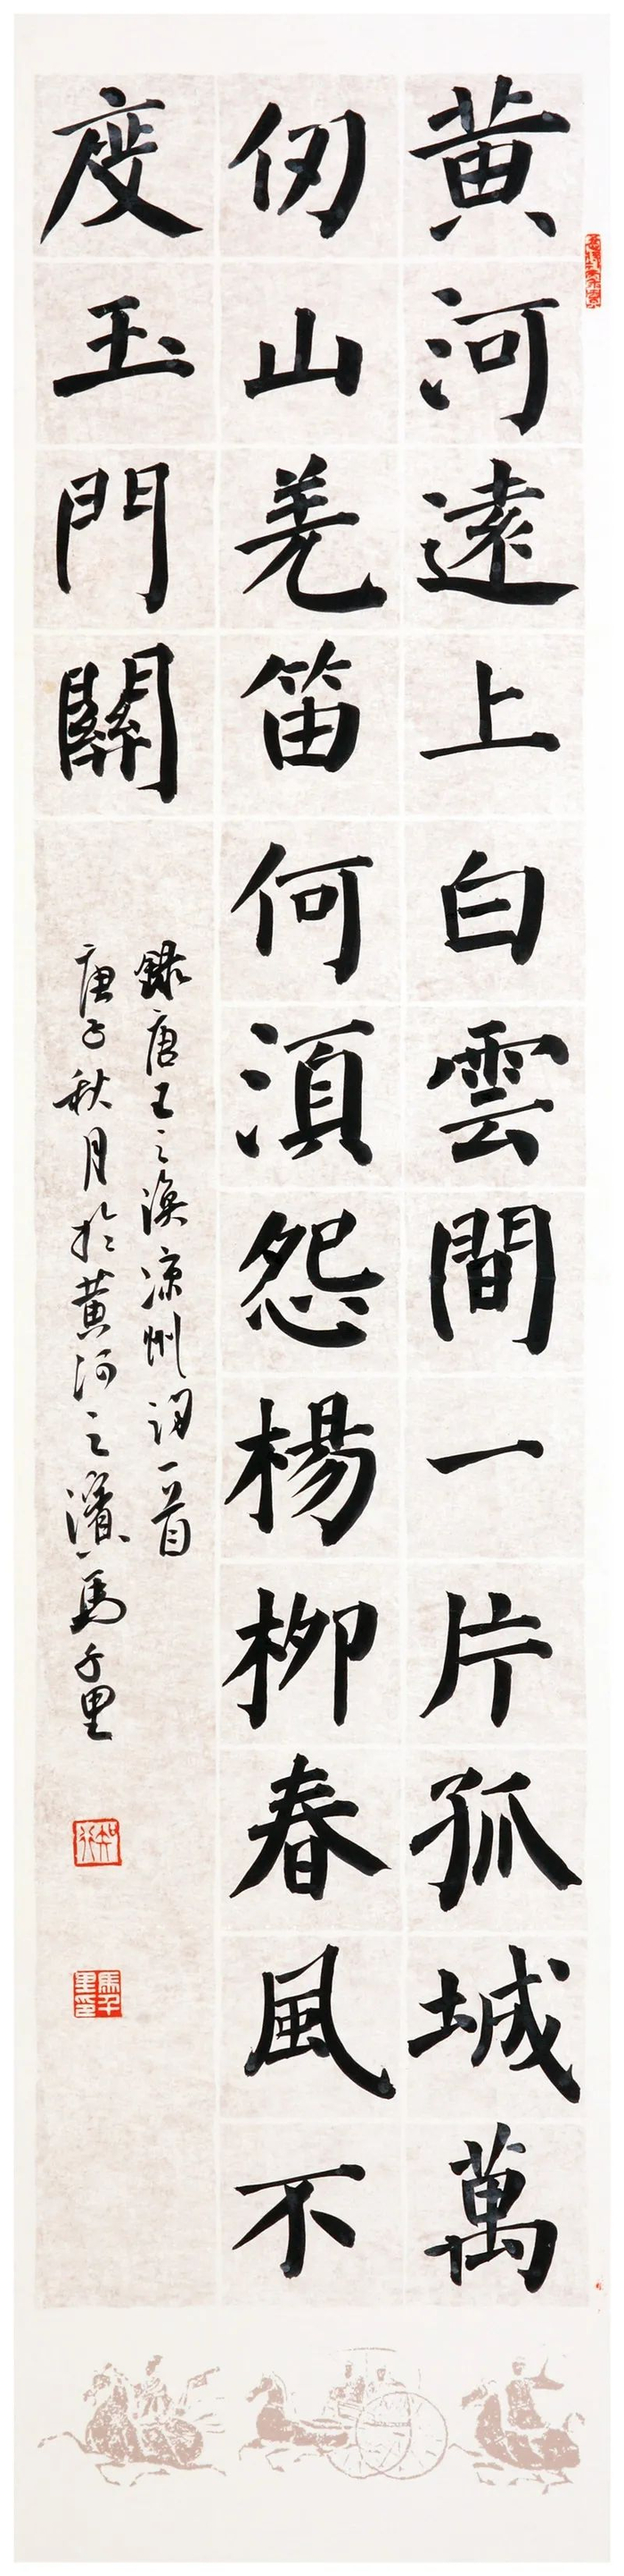 黄河遠上白雲間一片孤城萬
仞山羌笛何須怨楊柳春風不
度玉門關
録唐王之渙涼州詞一首
庚子秋月於黄河之濱馬千里
知行
馬千里印